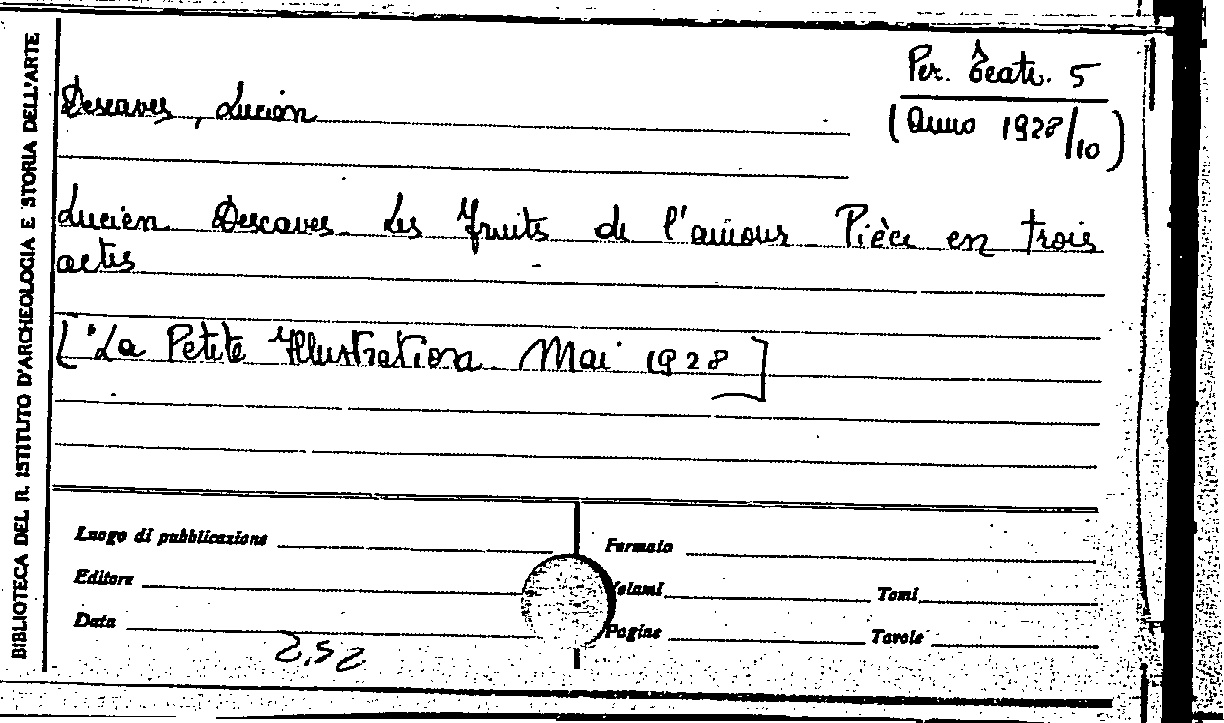 BIBLIOTECA DEL R. ISTITUTO D'ARCHEOLOGIA E STORIA DELL'ARTE
Per. Teatr. 5
(Anno 1928/10)
Descaves, Lucien
Lucien Descaves. Les fruits de l'amour. Pièce en trois
actes
["La Petite Illustration. Mai 1928]
Luogo di pubblicazione
Editore
Data
2.52
Formato
Volumi
Tomi
Pagine
Tavole